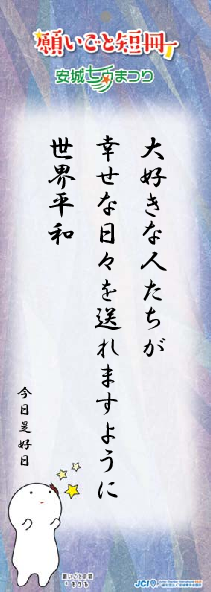 願いごと短冊
安城七夕まつり
大好きな人たちが
幸せな日々を送れますように
世界平和
今日是好日
願いごと短冊
JCI